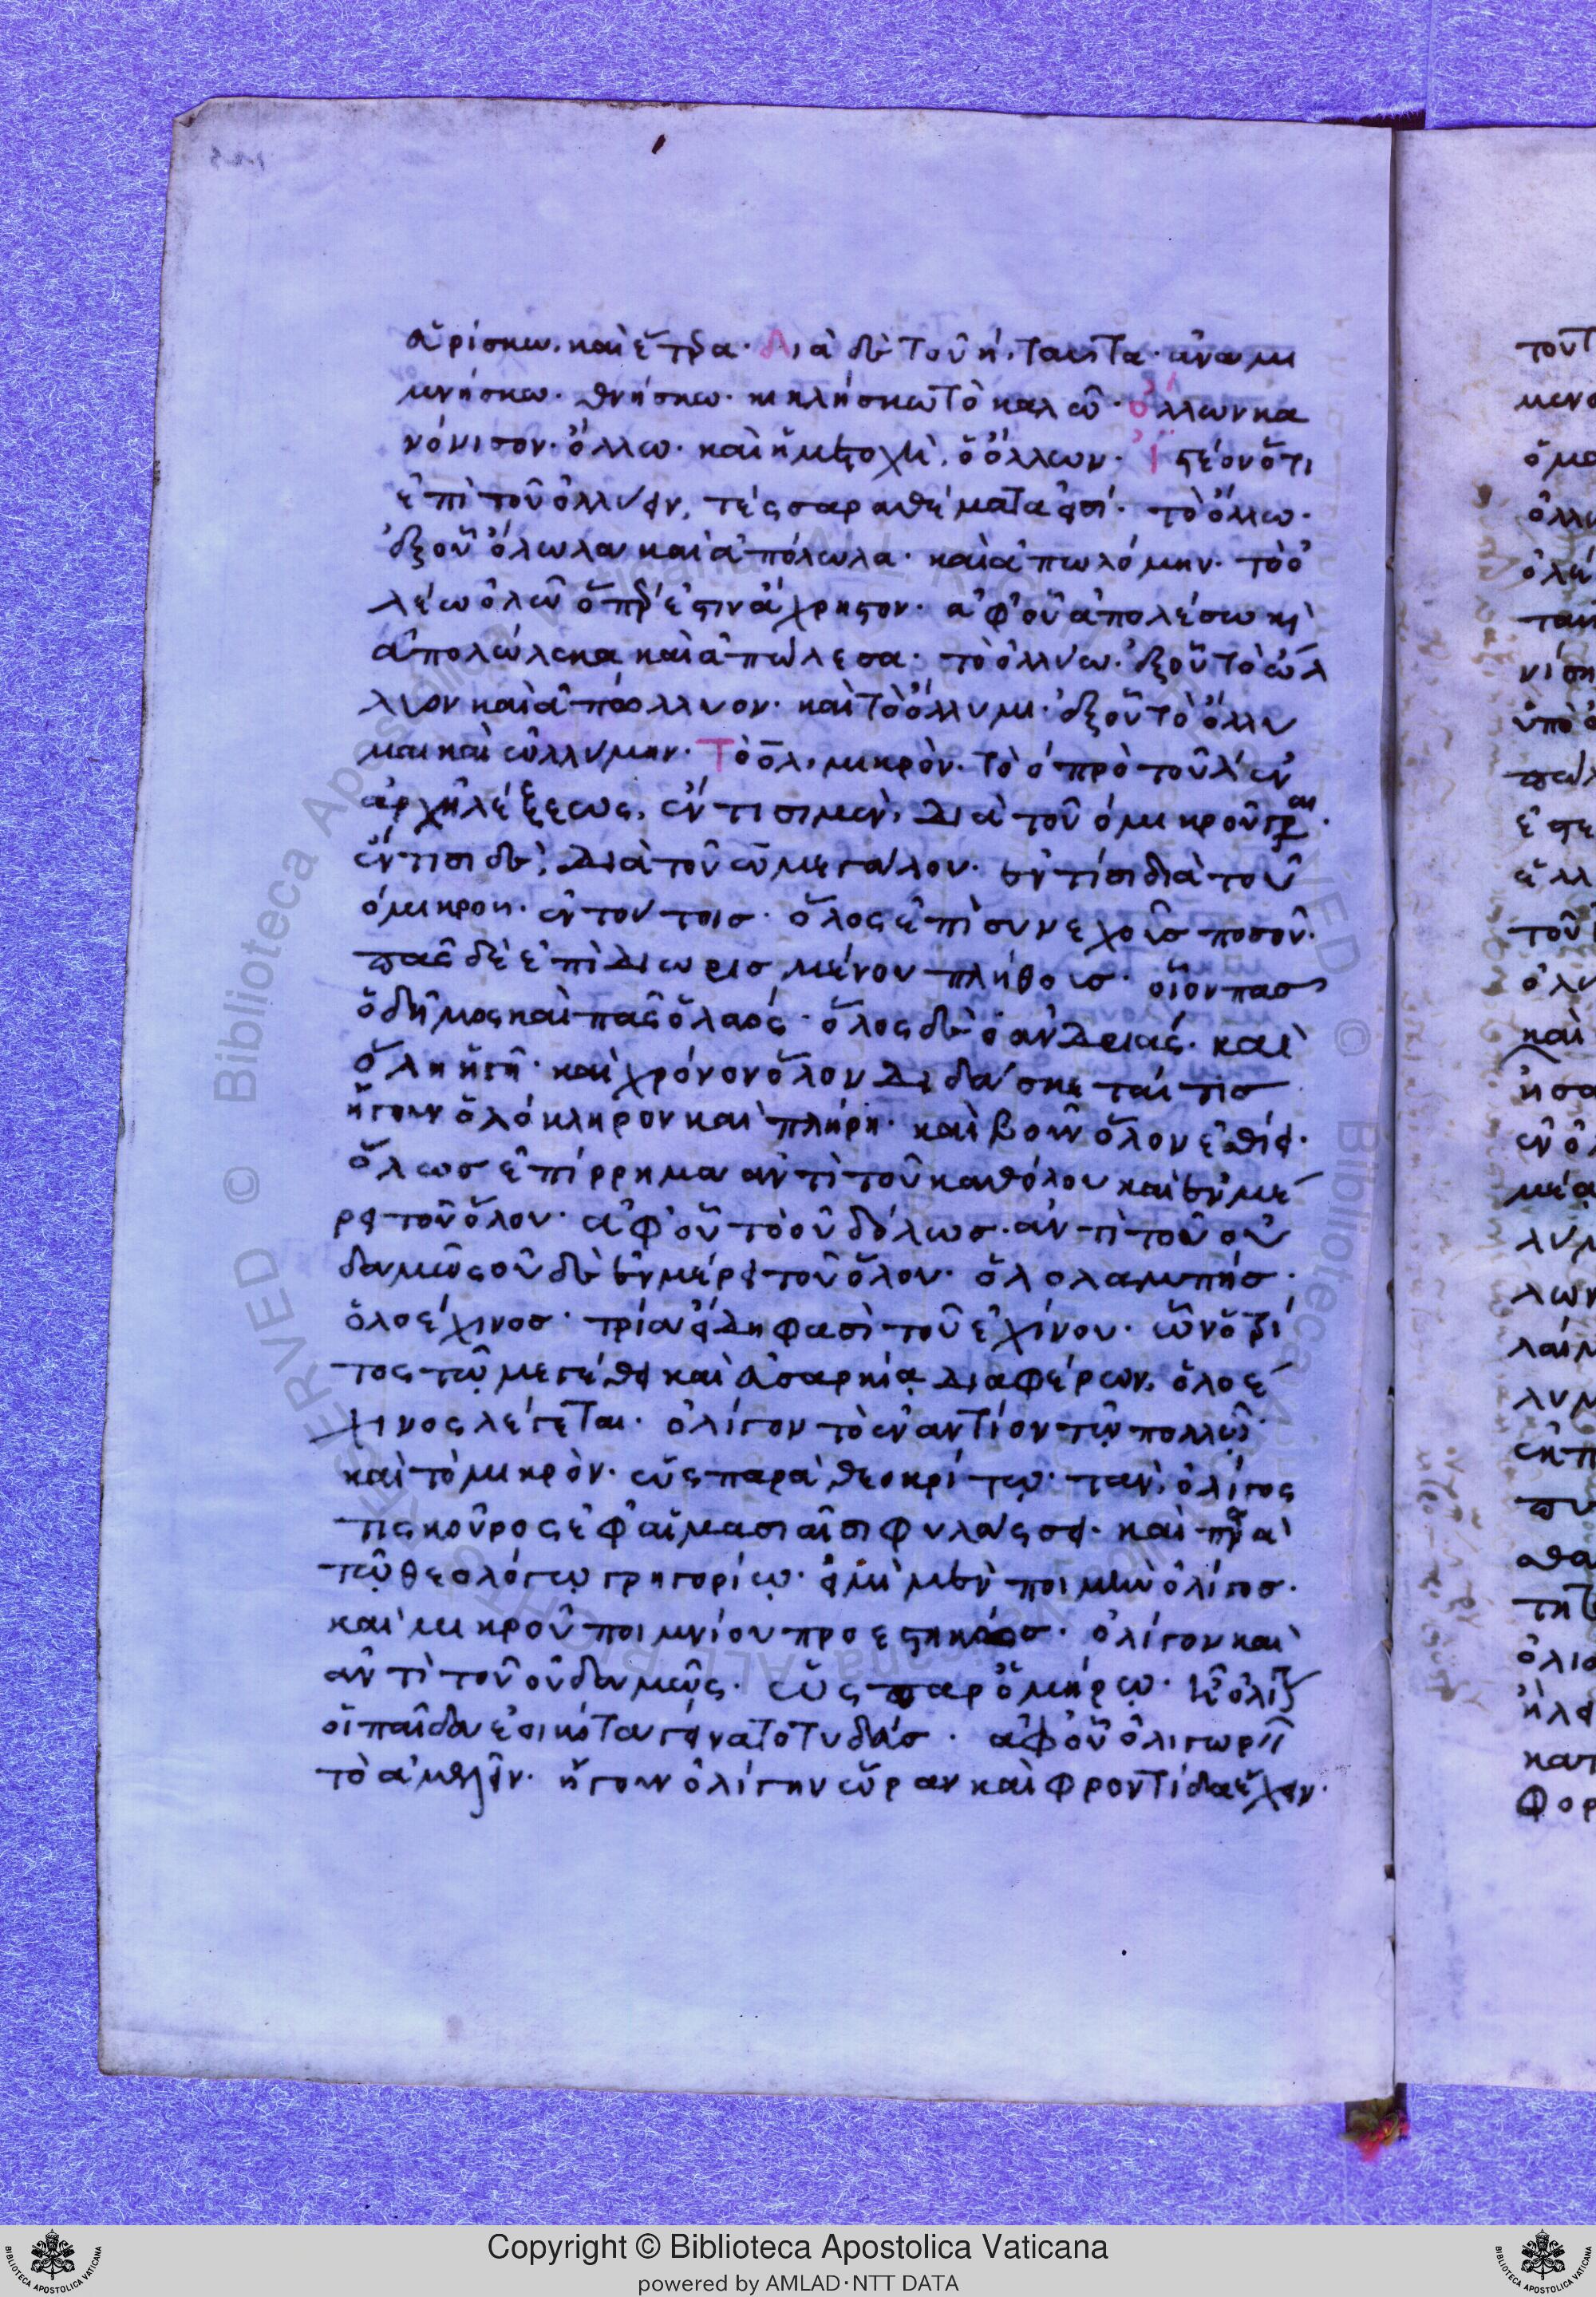 εὑρίσκω. καὶ ἕτερα. Διὰ δὲ τοῦ η, ταῦτα. ἀναμι
μνήσκω. θνήσκω. κικλήσκω τὸ καλῶ. ὄλλων κα
νόνισον. ὄλλω. καὶ ἡ μετοχὴ, ὁ ὄλλων. Ἰστέον ὅτι
ἐπὶ τοῦ ὀλλύειν, τέσσαρα θέματα εἰσί. τὸ ὄλλω.
ἐξ οὗ ὄλωλα καὶ ἀπόλωλα. καὶ ἀπωλόμην. τὸ ὀ
λέω ὀλῶ ὅπερ ἐστιν ἄχρηστον. ἀφ' οὗ ἀπολέσω καὶ
ἀπολώλεκα καὶ ἀπώλεσα. τὸ ὀλλύω. ἐξ οὗ τὸ ὤλ
λυον καὶ ἀπόλλυον. καὶ τὸ ὄλλυμι. ἐξ οὗ τὸ ὄλλυ
μαι καὶ ὠλλύμην. Τὸ ὀλ, μικρόν. τὸ ο πρὸ τοῦ λ ἐν
ἀρχῇ λέξεως, ἔν τισι μὲν, διὰ τοῦ ὀμικροῦ γράφεται.
ἔν τισι δὲ, διὰ τοῦ ὠμεγάλου. ἐν τίσι διὰ τοῦ
ὀμικρου. ἐν τούτοις. ὅλος ἐπὶ συνεχοῦς ποσοῦ.
πᾶς δὲ ἐπὶ διωρισμένου πλήθους. οἷον πᾶς
ὁ δῆμος καὶ πᾶς ὁ λαός. ὅλος δὲ ὁ ἀνδριάς. καὶ
ὅλη ἡ γῆ. καὶ χρόνον ὅλον διδάσκεταί τις
ἤγουν ὁλόκληρον καὶ πλήρη. καὶ βοῦν ὅλον ἐσθίει.
ὅλως ἐπίρρημα ἀντὶ τοῦ καθόλου καὶ ἐν μέ
ρει τοῦ ὅλου. ἀφ' οὗ τὸ οὐδόλως. ἀντὶ τοῦ οὐ
δαμῶς οὐδὲ ἐν μέρει τοῦ ὅλου. ὁλολαμπής.
ὁλοέχινος. τρία εἴδη φασὶ τοῦ ἐχίνου. ὧν ὁ τρί
τος τῷ μεγέθει καὶ εὐσαρκίᾳ διαφέρων, ὁλοέ
χινος λέγεται. ὀλίγον τὸ ἐναντίον τῷ πολλῷ.
καὶ τὸ μικρὸν. ὡς παρὰ θεοκρίτῳ. τὰν, ὀλίγος
τις κοῦρος ἐφ' αἱμασιαῖσι φυλάσσει. καὶ παρὰ
τῷ θεολόγῳ γρηγορίῳ. εἰμὶ μὲν ποιμὴν ὀλίγος.
καὶ μικροῦ ποιμνίου προεστηκώς. ὀλίγον καὶ
ἀντὶ τοῦ οὐδαμῶς. ὡς παρ' ὁμήρῳ. ἢ ὀλίγον
οἷ παῖδα ἐοικότα γείνατο τυδεύς. ἀφ' οὗ ὀλιγωρεῖν
τὸ ἀμελεῖν. ἤγουν ὀλίγην ὥραν καὶ φροντίδα ἔχειν.
Copyright © Biblioteca Apostolica Vaticana
powered by AMLAD·NTT DATA